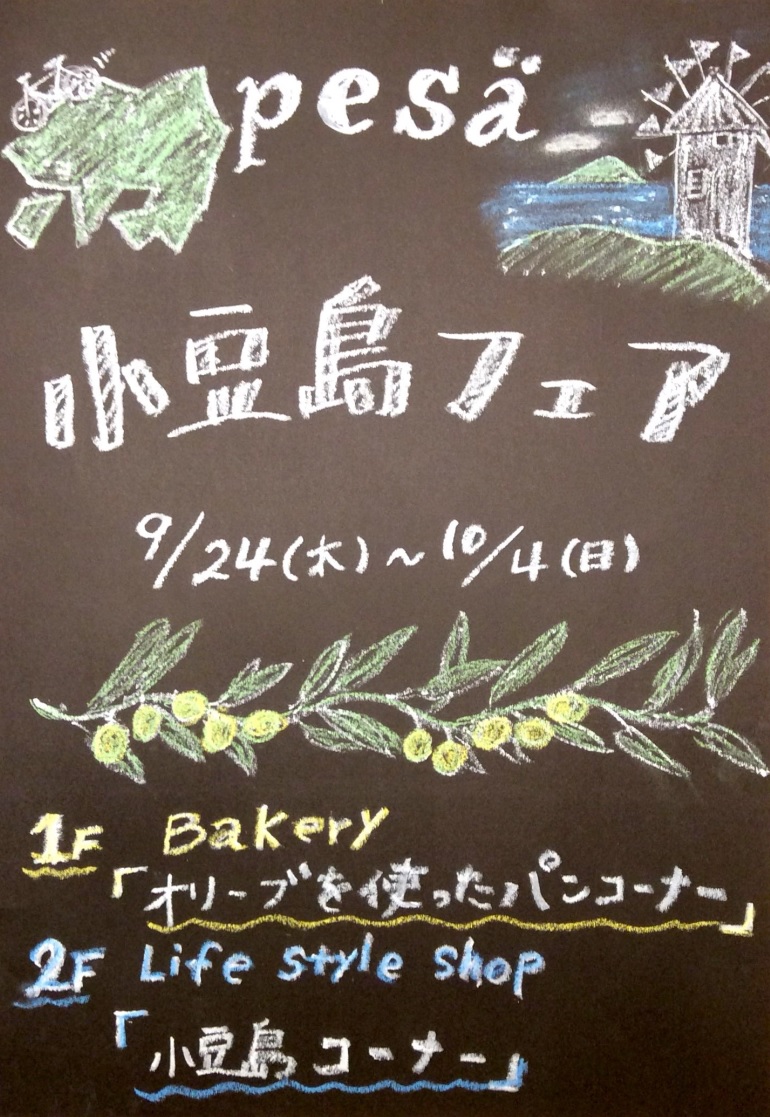 pesä
小豆島フェア
9/24(木)~10/4(日)
1F Bakery
「オリーブを使ったパンコーナー」
2F Life style shop
「小豆島コーナー」